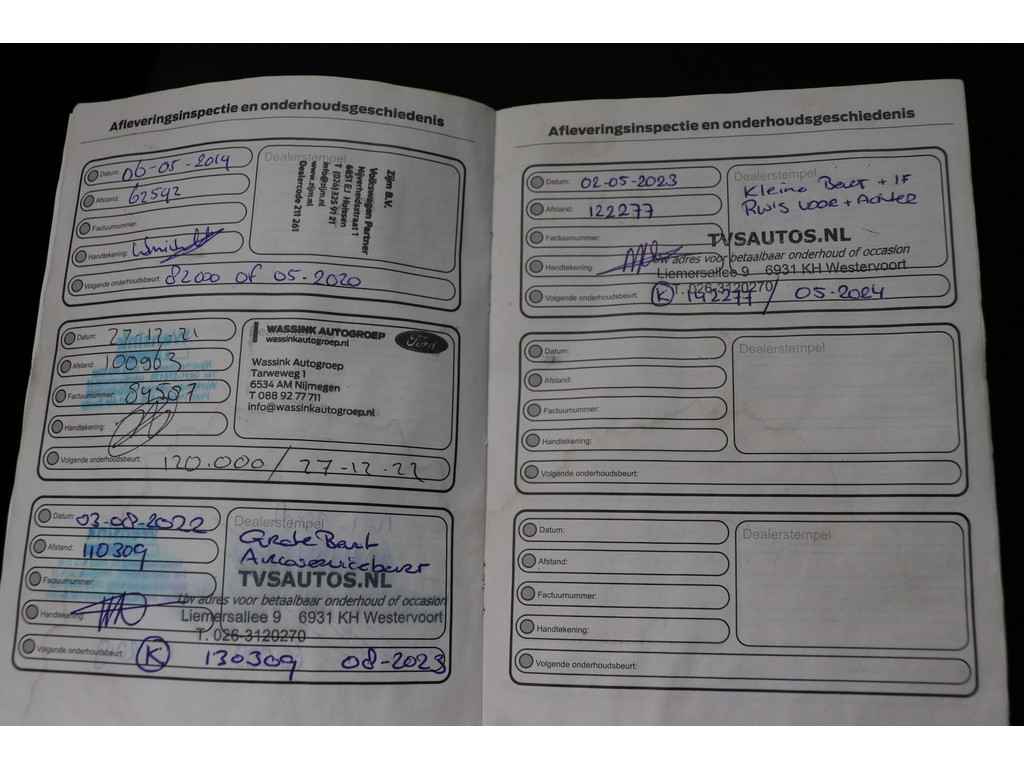 Afleveringsinspectie en onderhoudsgeschiedenis
Datum: 06-05-2019
Afstand: 62592
Factuurnummer:
Handtekening:
Volgende onderhoudsbeurt: 82000 of 05-2020
Dealerstempel
Zijm B.V.
Volkswagen Partner
Nijverheidsstraat 1
6851 EJ Huissen
T (026) 325 91 21
info@zijm.nl
www.zijm.nl
Dealercode 211 261
Datum: 27-12-21
Afstand: 100963
Factuurnummer: 84587
Handtekening:
Volgende onderhoudsbeurt: 120.000 / 27-12-22
WASSINK AUTOGROEP
wassinkautogroep.nl
Ford
Wassink Autogroep
Tarweweg 1
6534 AM Nijmegen
T 088 92 77 711
info@wassinkautogroep.nl
Datum: 03-08-2022
Afstand: 110309
Factuurnummer:
Handtekening:
Volgende onderhoudsbeurt: K 130309 08-2023
Dealerstempel
Grote Beurt
Aircoservicebeurt
TVSAUTOS.NL
Uw adres voor betaalbaar onderhoud of occasion
Liemersallee 9 6931 KH Westervoort
T. 026-3120270
Afleveringsinspectie en onderhoudsgeschiedenis
Datum: 02-05-2023
Afstand: 122277
Factuurnummer:
Handtekening:
Volgende onderhoudsbeurt: K 142277 / 05-2024
Dealerstempel
Kleine Beurt + IF
Ruw's voor + Achter
TVSAUTOS.NL
Uw adres voor betaalbaar onderhoud of occasion
Liemersallee 9 6931 KH Westervoort
T. 026-3120270
Datum:
Afstand:
Factuurnummer:
Handtekening:
Volgende onderhoudsbeurt:
Dealerstempel
Datum:
Afstand:
Factuurnummer:
Handtekening:
Volgende onderhoudsbeurt:
Dealerstempel